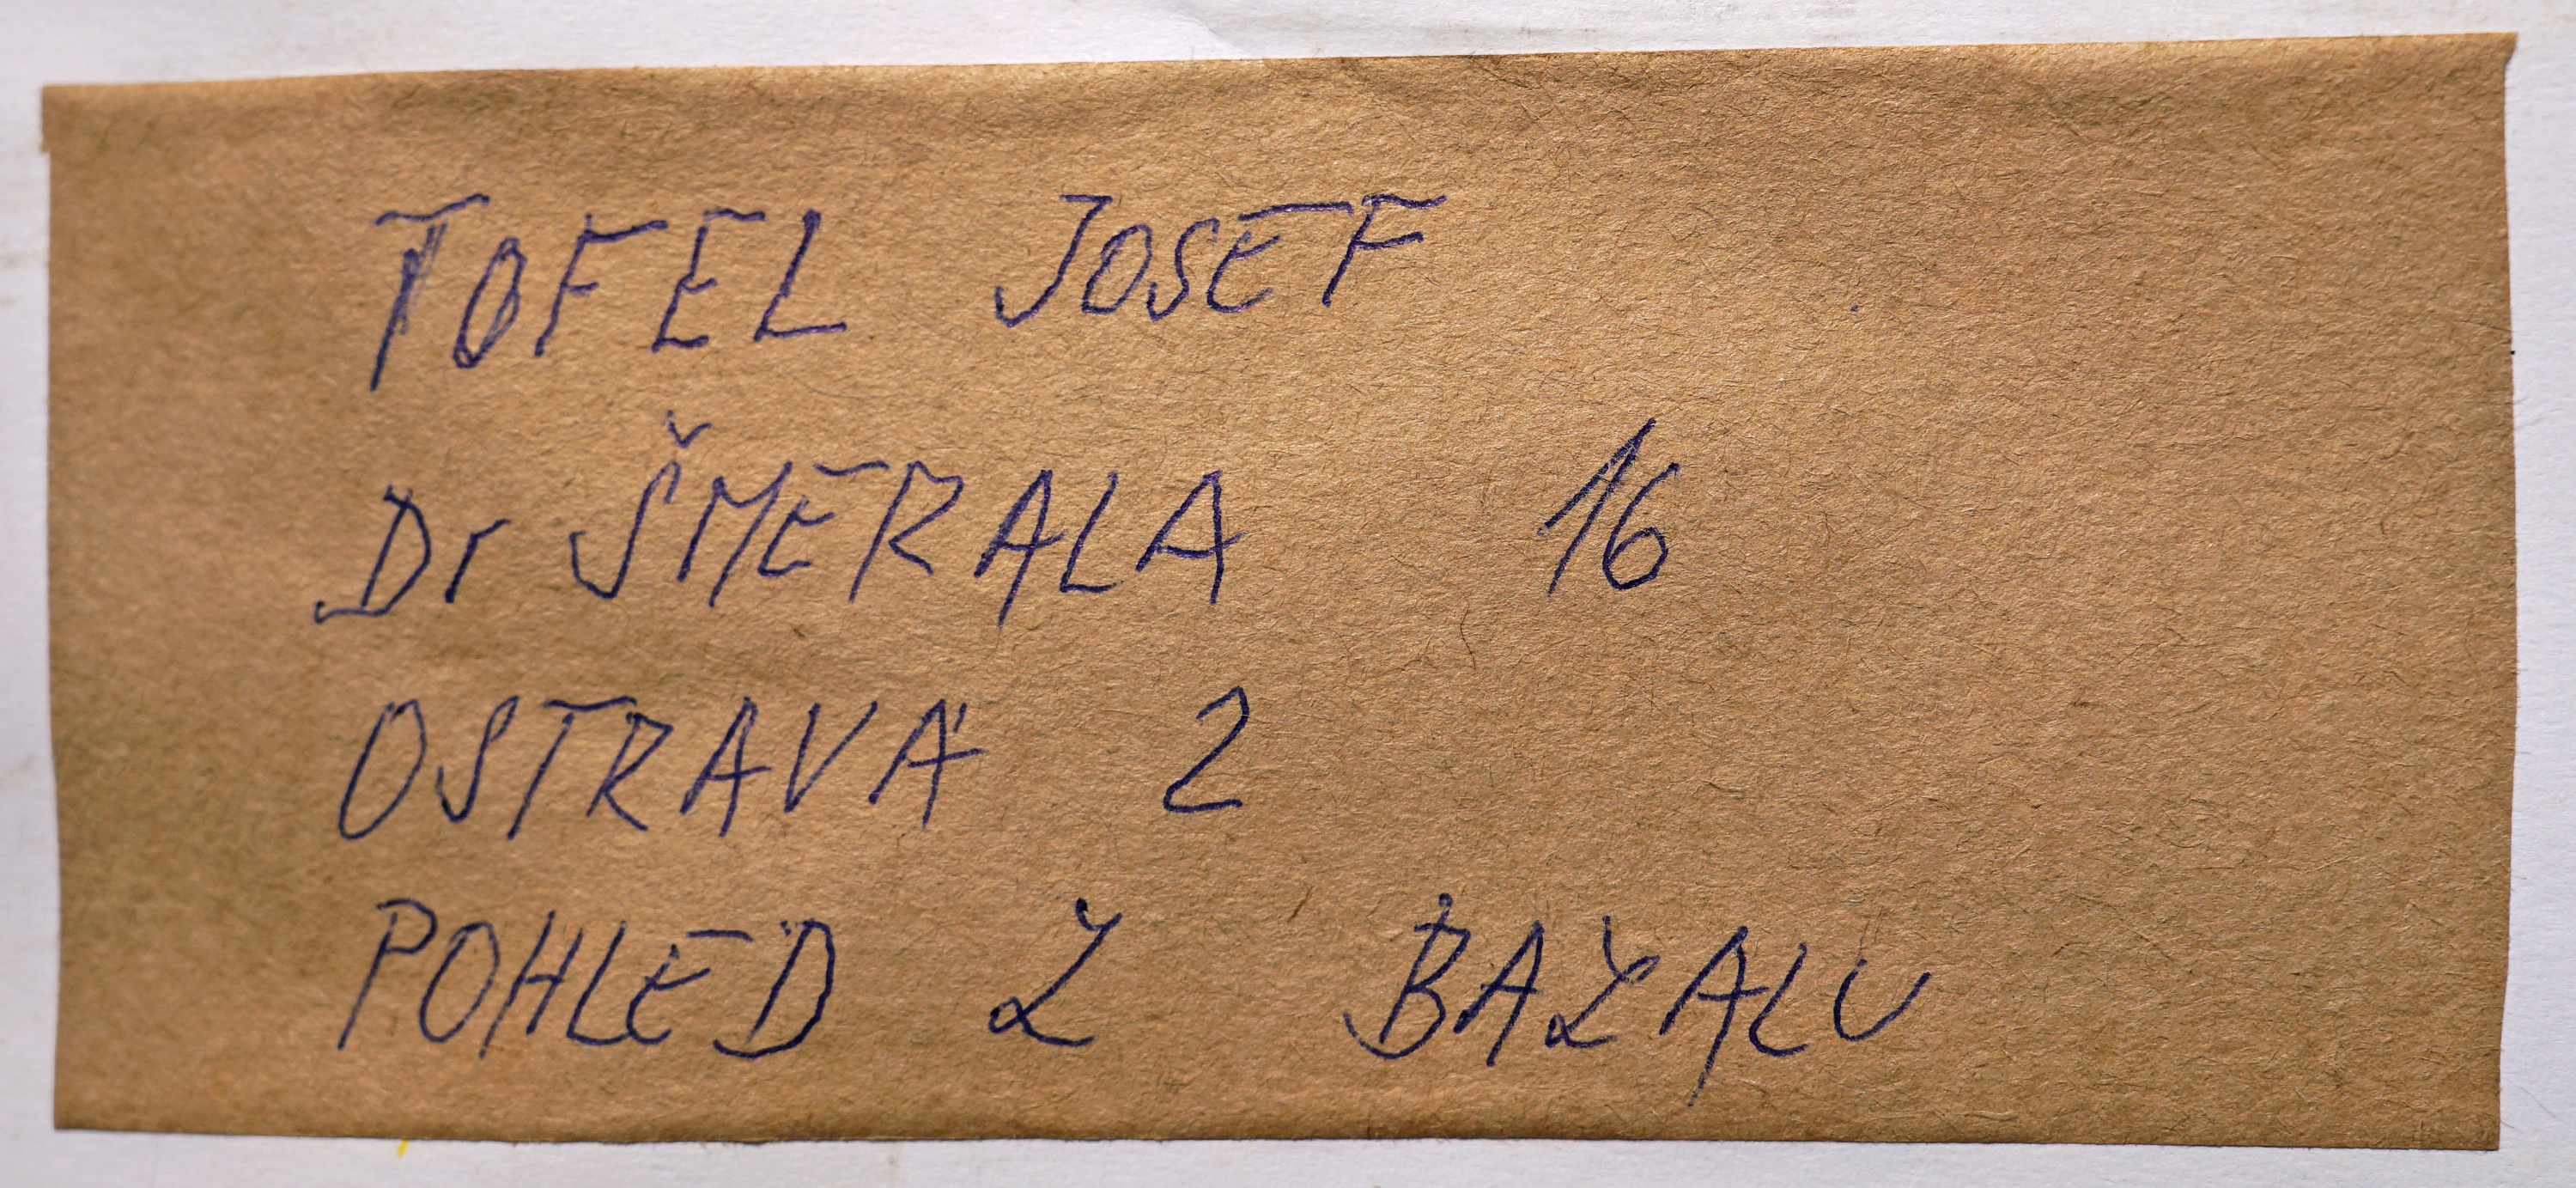 TOFEL JOSEF
Dr ŠMERALA 16
OSTRAVA 2
POHLED Z BAZALU